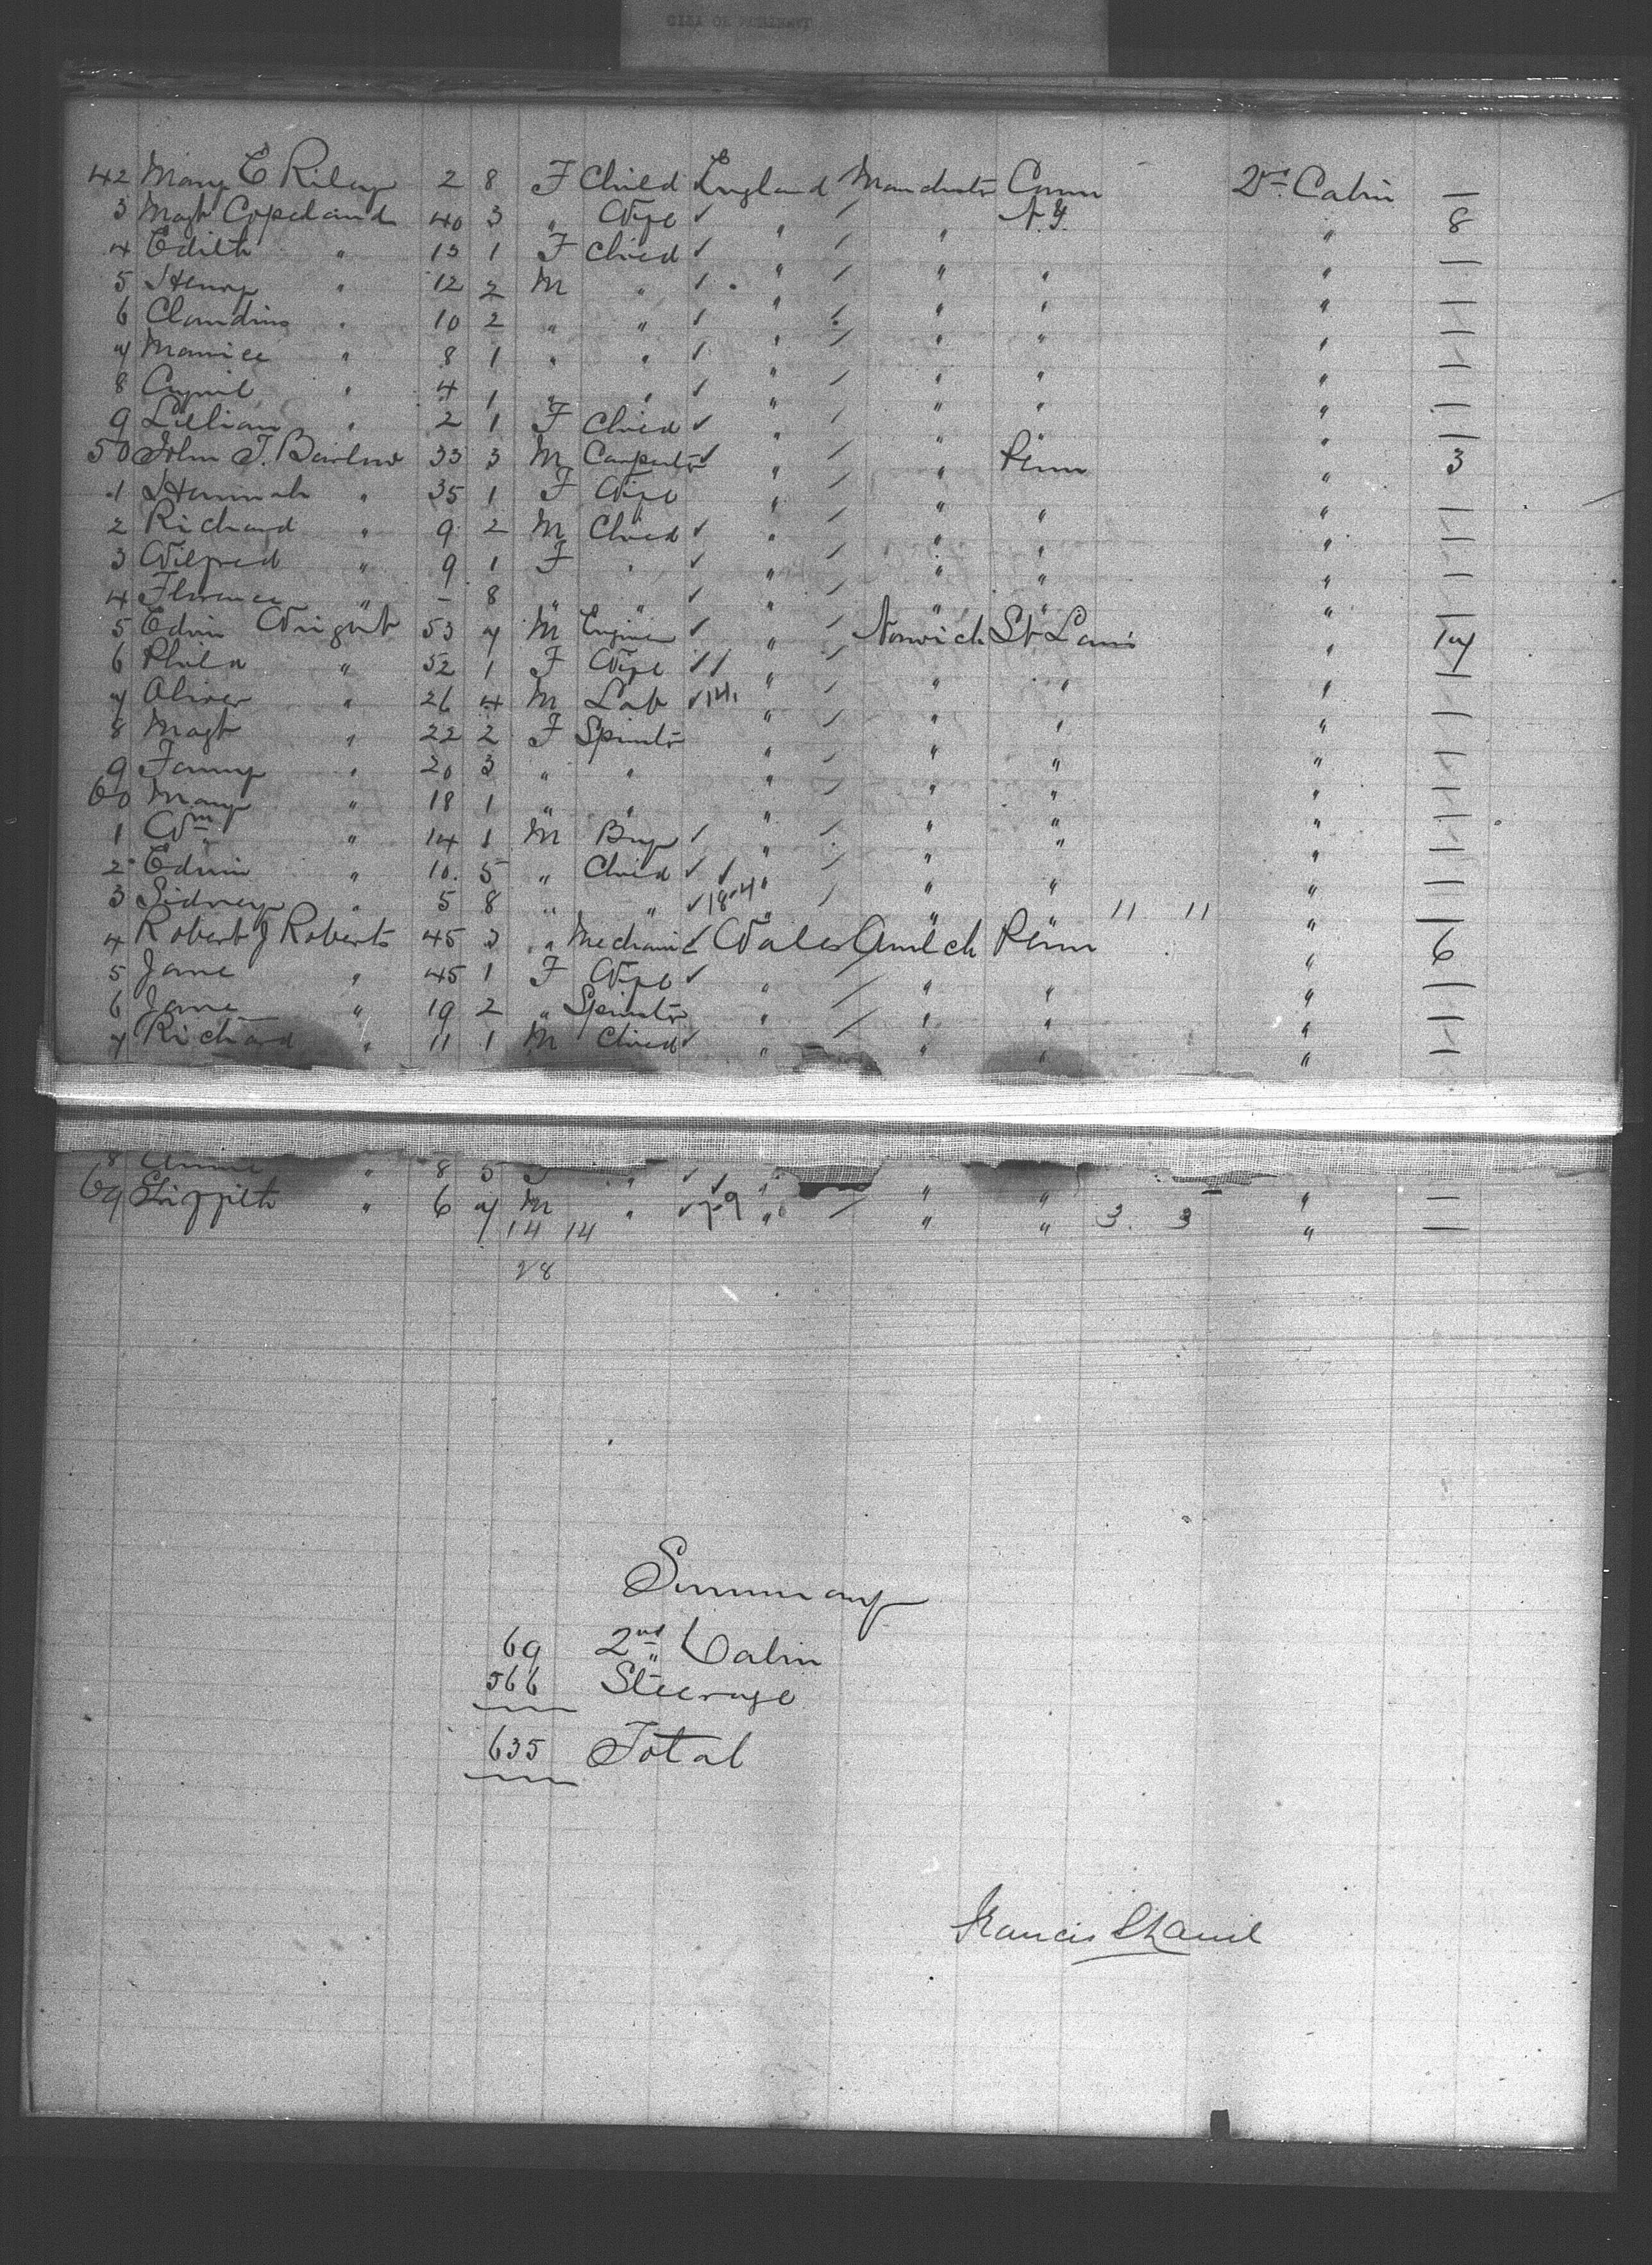 42 Mary E Riley 2 8 F Child ✓ England Manchester Conn 2nd Cabin —
3 Magt Copeland 40 3 " Wife ✓ " / " N.Y. " 8
4 Edith " 13 1 F Child ✓ " / " " " —
5 Henry " 12 2 M " ✓ " / " " " —
6 Claudius " 10 2 " " ✓ " / " " " —
7 Maurice " 8 1 " " ✓ " / " " " —
8 Cyril " 4 1 " " ✓ " / " " " —
9 Lillian " 2 1 F Child ✓ " / " " " —
50 John T. Barlow 33 3 M Carpenter ✓ " / " Penn " 3
1 Hannah " 35 1 F Wife " / " " " —
2 Richard " 9 2 M Child ✓ " / " " " —
3 Wilfred " 9 1 F " ✓ " / " " " —
4 Florence " - 8 " " ✓ " / " " " —
5 Edwin Wright 53 7 M Engineer ✓ " / Norwich St Louis " 17
6 " 52 1 F Wife ✓ / " / " " " —
7 Oliver " 26 4 M Lab ✓ 14 " / " " " —
8 Magt " 22 2 F Spinster " / " " " —
9 Fanny " 20 3 " " " / " " " —
60 Mary " 18 1 " " " / " " " —
1 Wm " 14 1 M Boy ✓ " / " " " —
2 Edwin " 10 5 " Child ✓ ✓ " / " " " —
3 Sidney " 5 8 " " ✓ 18-4 " / " " 11 11 " —
4 Robert J Roberts 45 3 " Mechanic ✓ Wales / Amlch Penn " 6
5 Jane " 45 1 F Wife ✓ " / " " " —
6 Jane " 19 2 " Spinster " / " " " —
7 Richard " 11 1 M Child ✓ " " " " —
8 Annie " 8 5 F " ✓ ✓ " " " " —
69 Griffith " 6 7 M " ✓ 7-9 " / " " 3 3 " —
14 14
28
Summary
69 2nd Cabin
566 " Steerage
635 Total
Francis